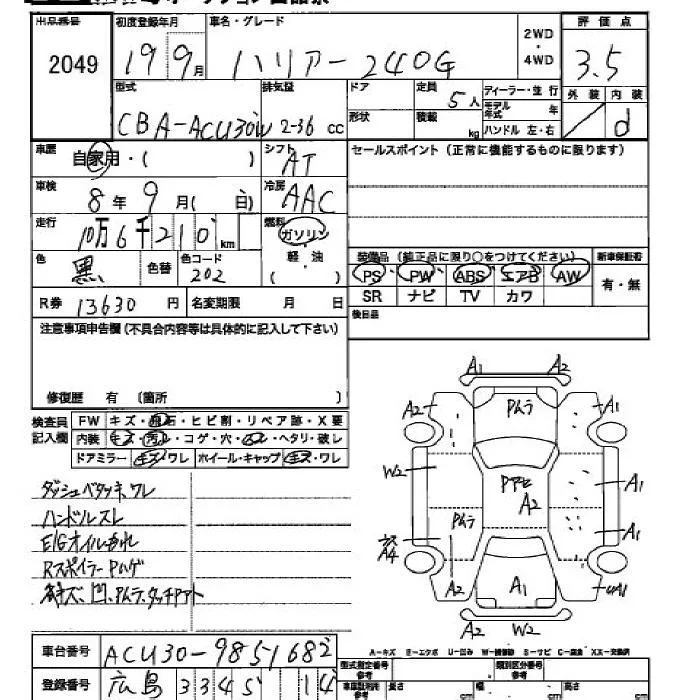 出品番号 初度登録年月 車名・グレード 2WD・4WD 評価点
2049 19 9月 ハリアー 240G 3.5
外装 内装
/ d
型式 排気量 ドア 定員 5人 ディーラー・並行
CBA-ACU30W 2-36 cc 形状 積載 kg モデル年式 年
ハンドル 左・右
車歴 自家用・( ) シフト AT セールスポイント(正常に機能するものに限ります)
車検 8年 9月( 日) 冷房 AAC
走行 10万6千210km 燃料 ガソリン
軽・油
( )
色 黒 色替 色コード 202
装備品(純正品に限り○をつけてください) 新車保証書
PS PW ABS エアB AW 有・無
SR ナビ TV カワ
R券 13630円 名変期限 月 日 検目品
注意事項申告欄(不具合内容等は具体的に記入して下さい)
修復歴 有 (箇所 )
検査員記入欄 FW キズ・飛石・ヒビ割・リペア跡・X要
内装 キズ・汚れ・コゲ・穴・スレ・ヘタリ・破レ
ドアミラー キズ・ワレ ホイール・キャップ キズ・ワレ
ダッシュベタツキ、ワレ
ハンドルスレ
E/Gオイルもれ
RスポイラーPハゲ
キズ、凹、Pムラ、タッチアト
A1 A2
A2 Pムラ A1
W2 Pアセ A2 A1
Pムラ A1
A4
A2 A1 A1
A2 W2
A-キズ E-エクボ U-凹み W-補修跡 S-サビ C-腐食 XX-交換済
車台番号 ACU30-9851682
登録番号 広島 334 14
型式指定番号 参考 類別区分番号 参考
車庫証明用 参考 長さ cm 幅 cm 高さ cm